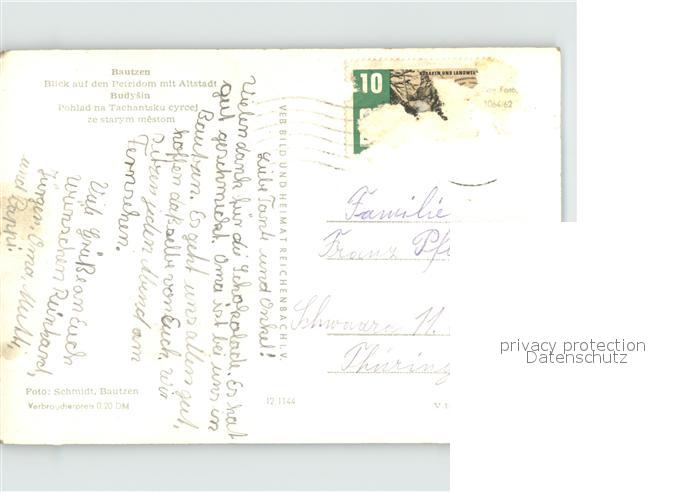 Bautzen
Blick auf den Petridom mit Altstadt
Budyšin
Pohlad na Tachantsku cyrcej
ze starym městom
Liebe Tante und Onkel!
Vielen dank für die Schokolade. Es hat
gut geschmeckt. Oma ist bei uns in
Bautzen. Es geht uns allen gut,
hoffen daß selbe von Euch. Wir
sitzen jeden Abend am
Fernsehen.
Viele Grüße an Euch
wünschen Reinhard,
Jürgen, Oma, Mutti,
und Pappi
Foto: Schmidt, Bautzen
Verbraucherpreis 0,20 DM
VEB BILD UND HEIMAT REICHENBACH I. V.
12 1144
10
UND LANDWE
Foto,
1064/62
Familie
Franz Pfe
Schwarza 11.
Thüring
privacy protection
Datenschutz